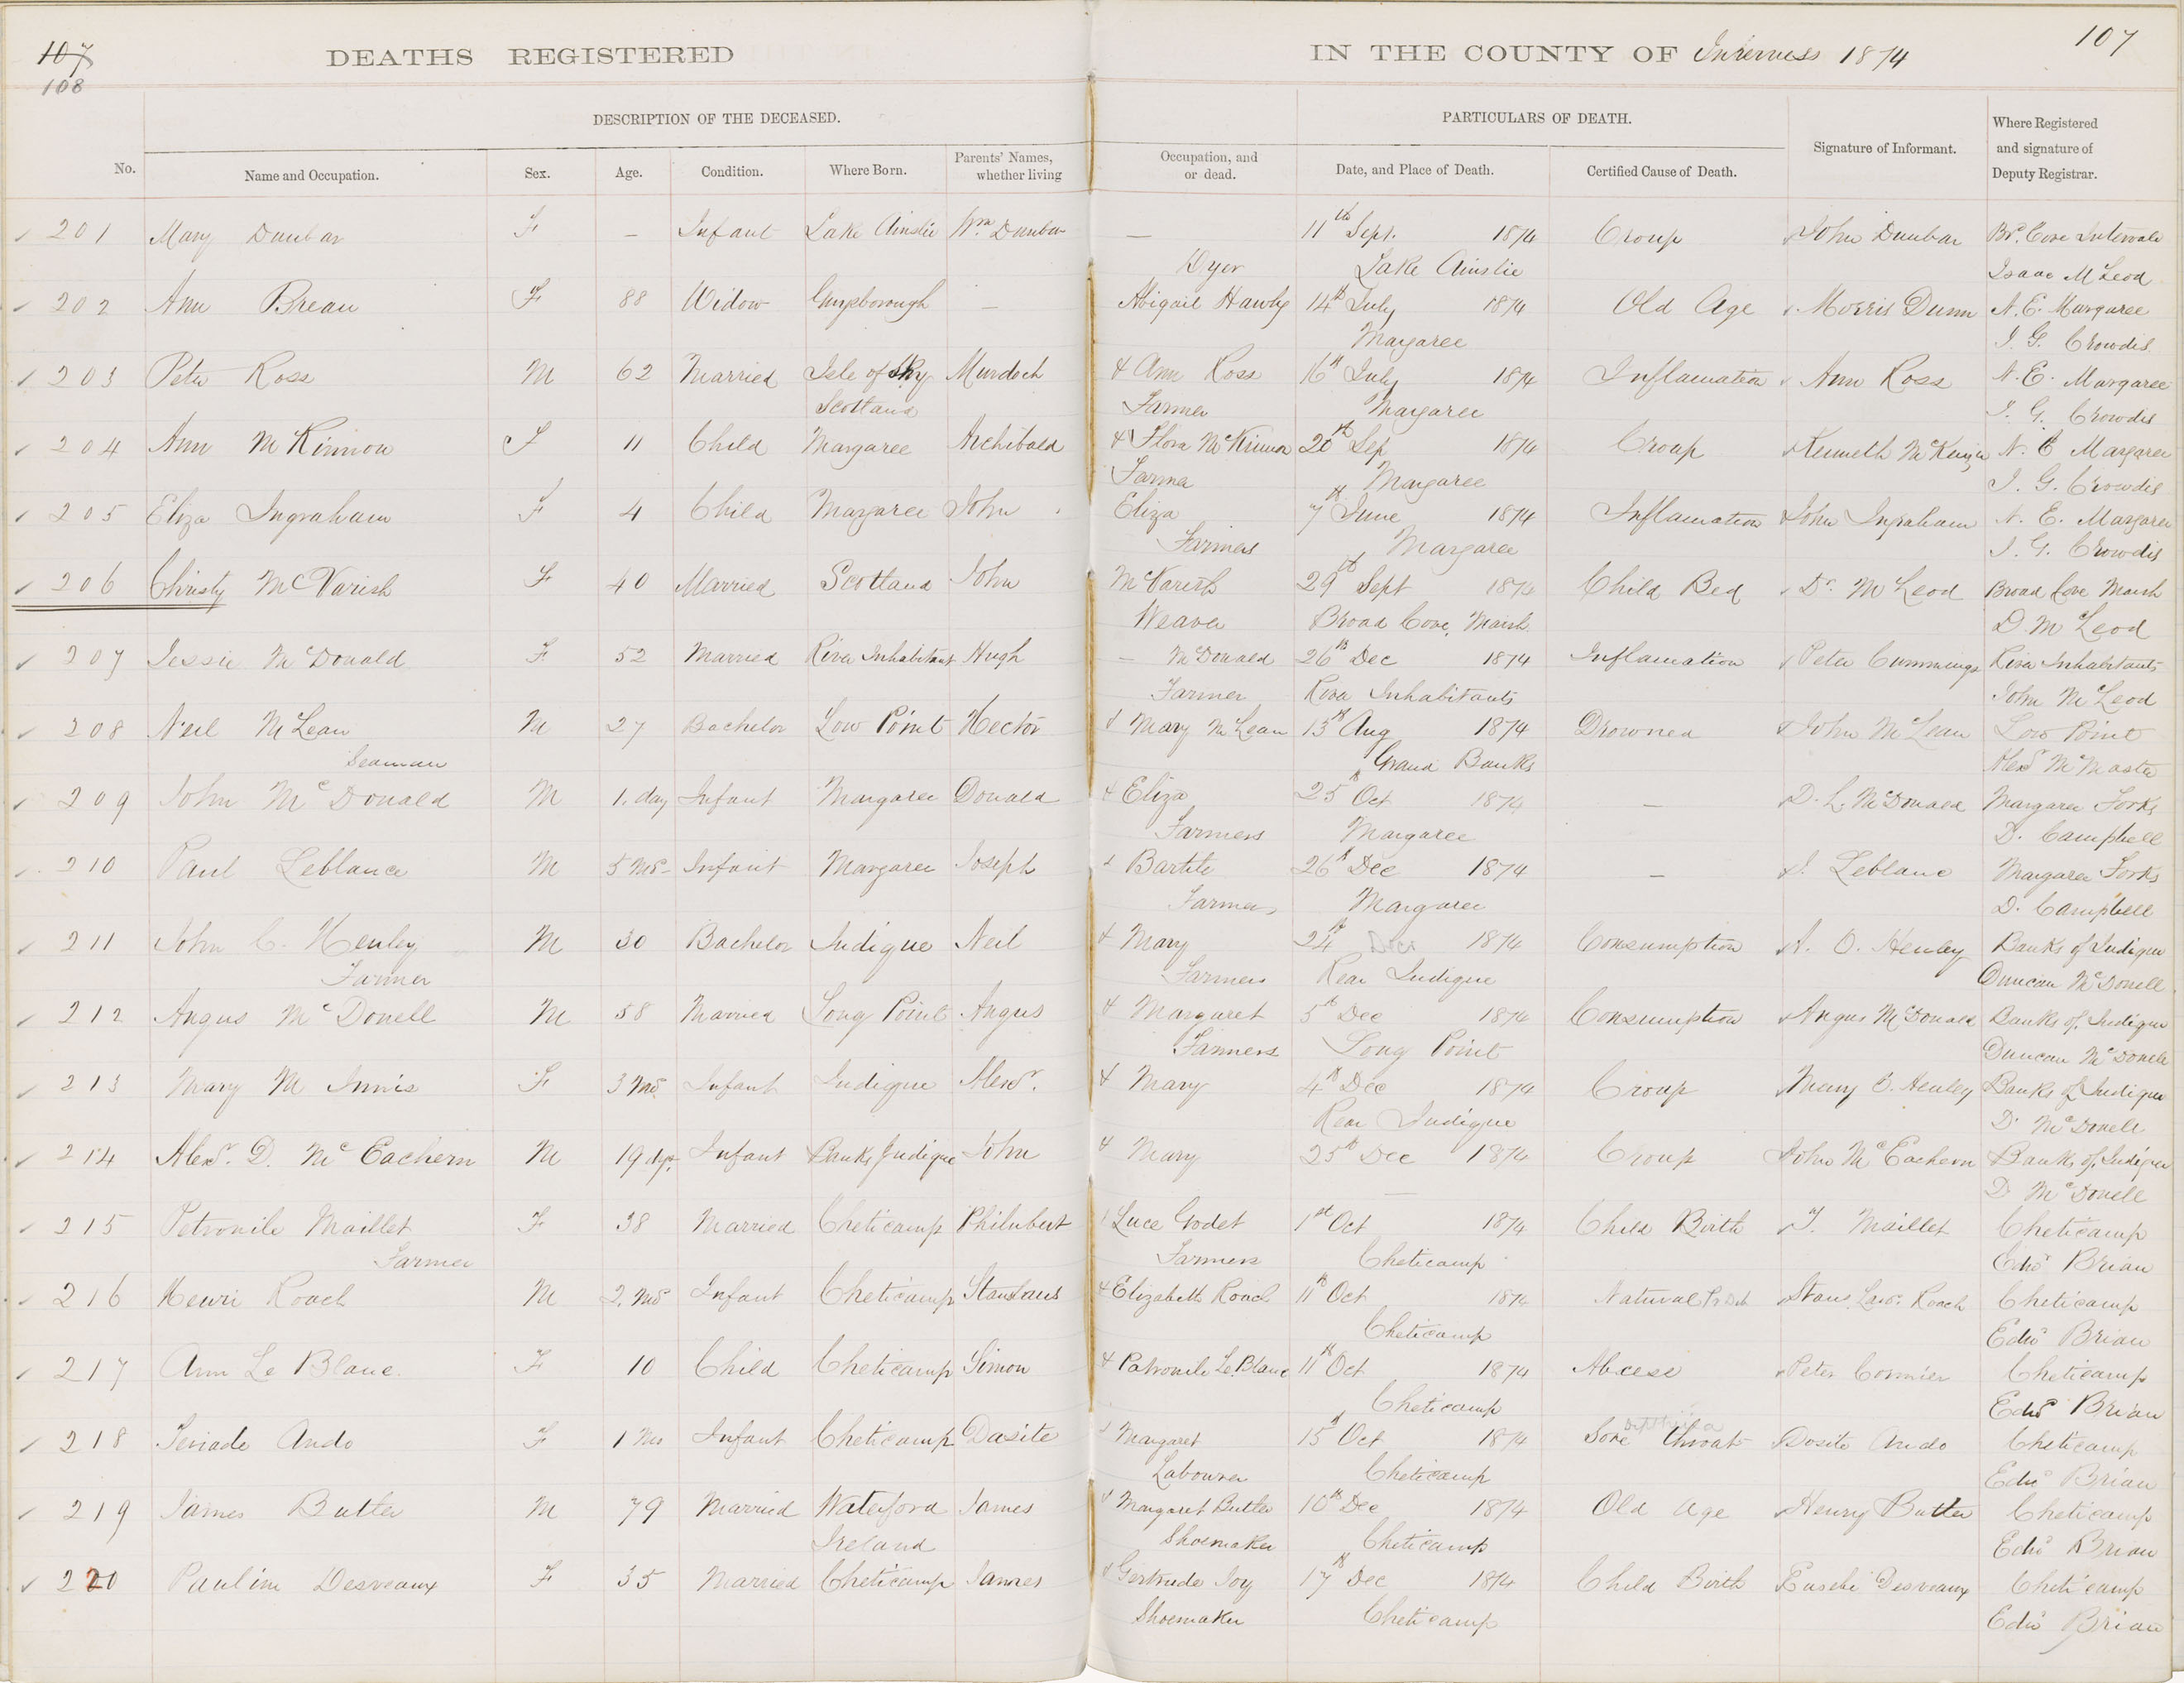 107
108
DEATHS REGISTERED
IN THE COUNTY OF Inverness 1874
107
DESCRIPTION OF THE DECEASED.
PARTICULARS OF DEATH.
No.
Name and Occupation.
Sex.
Age.
Condition.
Where Born.
Parents' Names, whether living
Occupation, and or dead.
Date, and Place of Death.
Certified Cause of Death.
Signature of Informant.
Where Registered and signature of Deputy Registrar.
201 Mary Dunbar F — Infant Lake Ainslie Wm Dunbar — 11th Sept. 1874 Croup John Dunbar Br. Cove Intervale
Dyer Lake Ainslie Isaac McLeod
202 Ann Breau F 88 Widow Guysborough — Abigail Hawly 14th July 1874 Old Age Morris Dunn N. E. Margaree
Margaree I. G. Crowdis
203 Peter Ross M 62 Married Isle of Sky Murdoch & Ann Ross 16th July 1874 Inflamation Ann Ross N. E. Margaree
Scotland Farmer Margaree I. G. Crowdis
204 Ann McKinnon F 11 Child Margaree Archibald & Flora McKinnon 20th Sep 1874 Croup Kenneth McKenzie N. E Margaree
Farmer Margaree I. G. Crowdis
205 Eliza Ingraham F 4 Child Margaree John Eliza 7th June 1874 Inflamation John Ingraham N. E. Margaree
Farmers Margaree I. G. Crowdis
206 Christy McVarish F 40 Married Scotland John McVarish 29th Sept 1874 Child Bed Dr. McLeod Broad Cove Marsh
Weaver Broad Cove, Marsh D. McLeod
207 Jessie McDonald F 52 Married River Inhabitant Hugh — McDonald 26th Dec 1874 Inflamation Peter Cummings River Inhabitants
Farmer River Inhabitants John McLeod
208 Neil McLean M 27 Bachelor Low Point Hector & Mary McLean 13th Aug 1874 Drowned John McLean Low Point
Seaman Grand Banks Alexr McMaster
209 John McDonald M 1. day Infant Margaree Donald & Eliza 25th Oct 1874 — D. L. McDonald Margaree Forks
Farmers Margaree D. Campbell
210 Paul Leblance M 5 Mos Infant Margaree Joseph & Bartite 26th Dec 1874 — J. Leblanc Margaree Forks
Farmer, Margaree D. Campbell
211 John C. Henley M 30 Bachelor Judique Neil & Mary 24th Dec 1874 Consumption A. O. Henley Banks of Judique
Farmer Farmers Rear Judique Duncan McDonell
212 Angus McDonell M 58 Married Long Point Angus & Margaret 5th Dec 1874 Consumption Angus McDonald Banks of Judique
Farmers Long Point Duncan McDonell
213 Mary McInnis F 3 Mos Infant Judique Alexr. & Mary 4th Dec 1874 Croup Henry O. Henley Banks of Judique
Rear Judique D. McDonell
214 Alexr. D. McEachern M 19 dys. Infant Banks Judique John & Mary 25th Dec 1874 Croup John McEachern Banks of Judique
— D McDonell
215 Petronile Maillet F 38 Married Cheticamp Philubert Luce Godet 1st Oct 1874 Child Birth T. Maillet Cheticamp
Farmer Farmers Cheticamp Edwd Brian
216 Henri Roach M 2. Mos Infant Cheticamp Stanlaus & Elizabeth Roach 11th Oct 1874 Natural Stans Laws. Roach Cheticamp
Cheticamp Edwd Brian
217 Ann Le Blanc F 10 Child Cheticamp Simon & Patronile Le.Blanc 11th Oct 1874 Abcess Peter Cormier Cheticamp
Cheticamp Edwd Brian
218 Ando F 1 Mo Infant Cheticamp Dasite Margaret 15th Oct 1874 Sore Throat Diptheria Dosite Ando Cheticamp
Labourer Cheticamp Edwd Brian
219 James Butler M 79 Married Waterford James & Margaret Butler 10th Dec 1874 Old age Henry Butler Cheticamp
Ireland Shoemaker Cheticamp Edwd Brian
220 Paulin Desveaux F 35 Married Cheticamp James & Gertrude Joy 17th Dec 1874 Child Birth Eusebe Desveaux Cheticamp
Shoemaker Cheticamp Edwd Brian